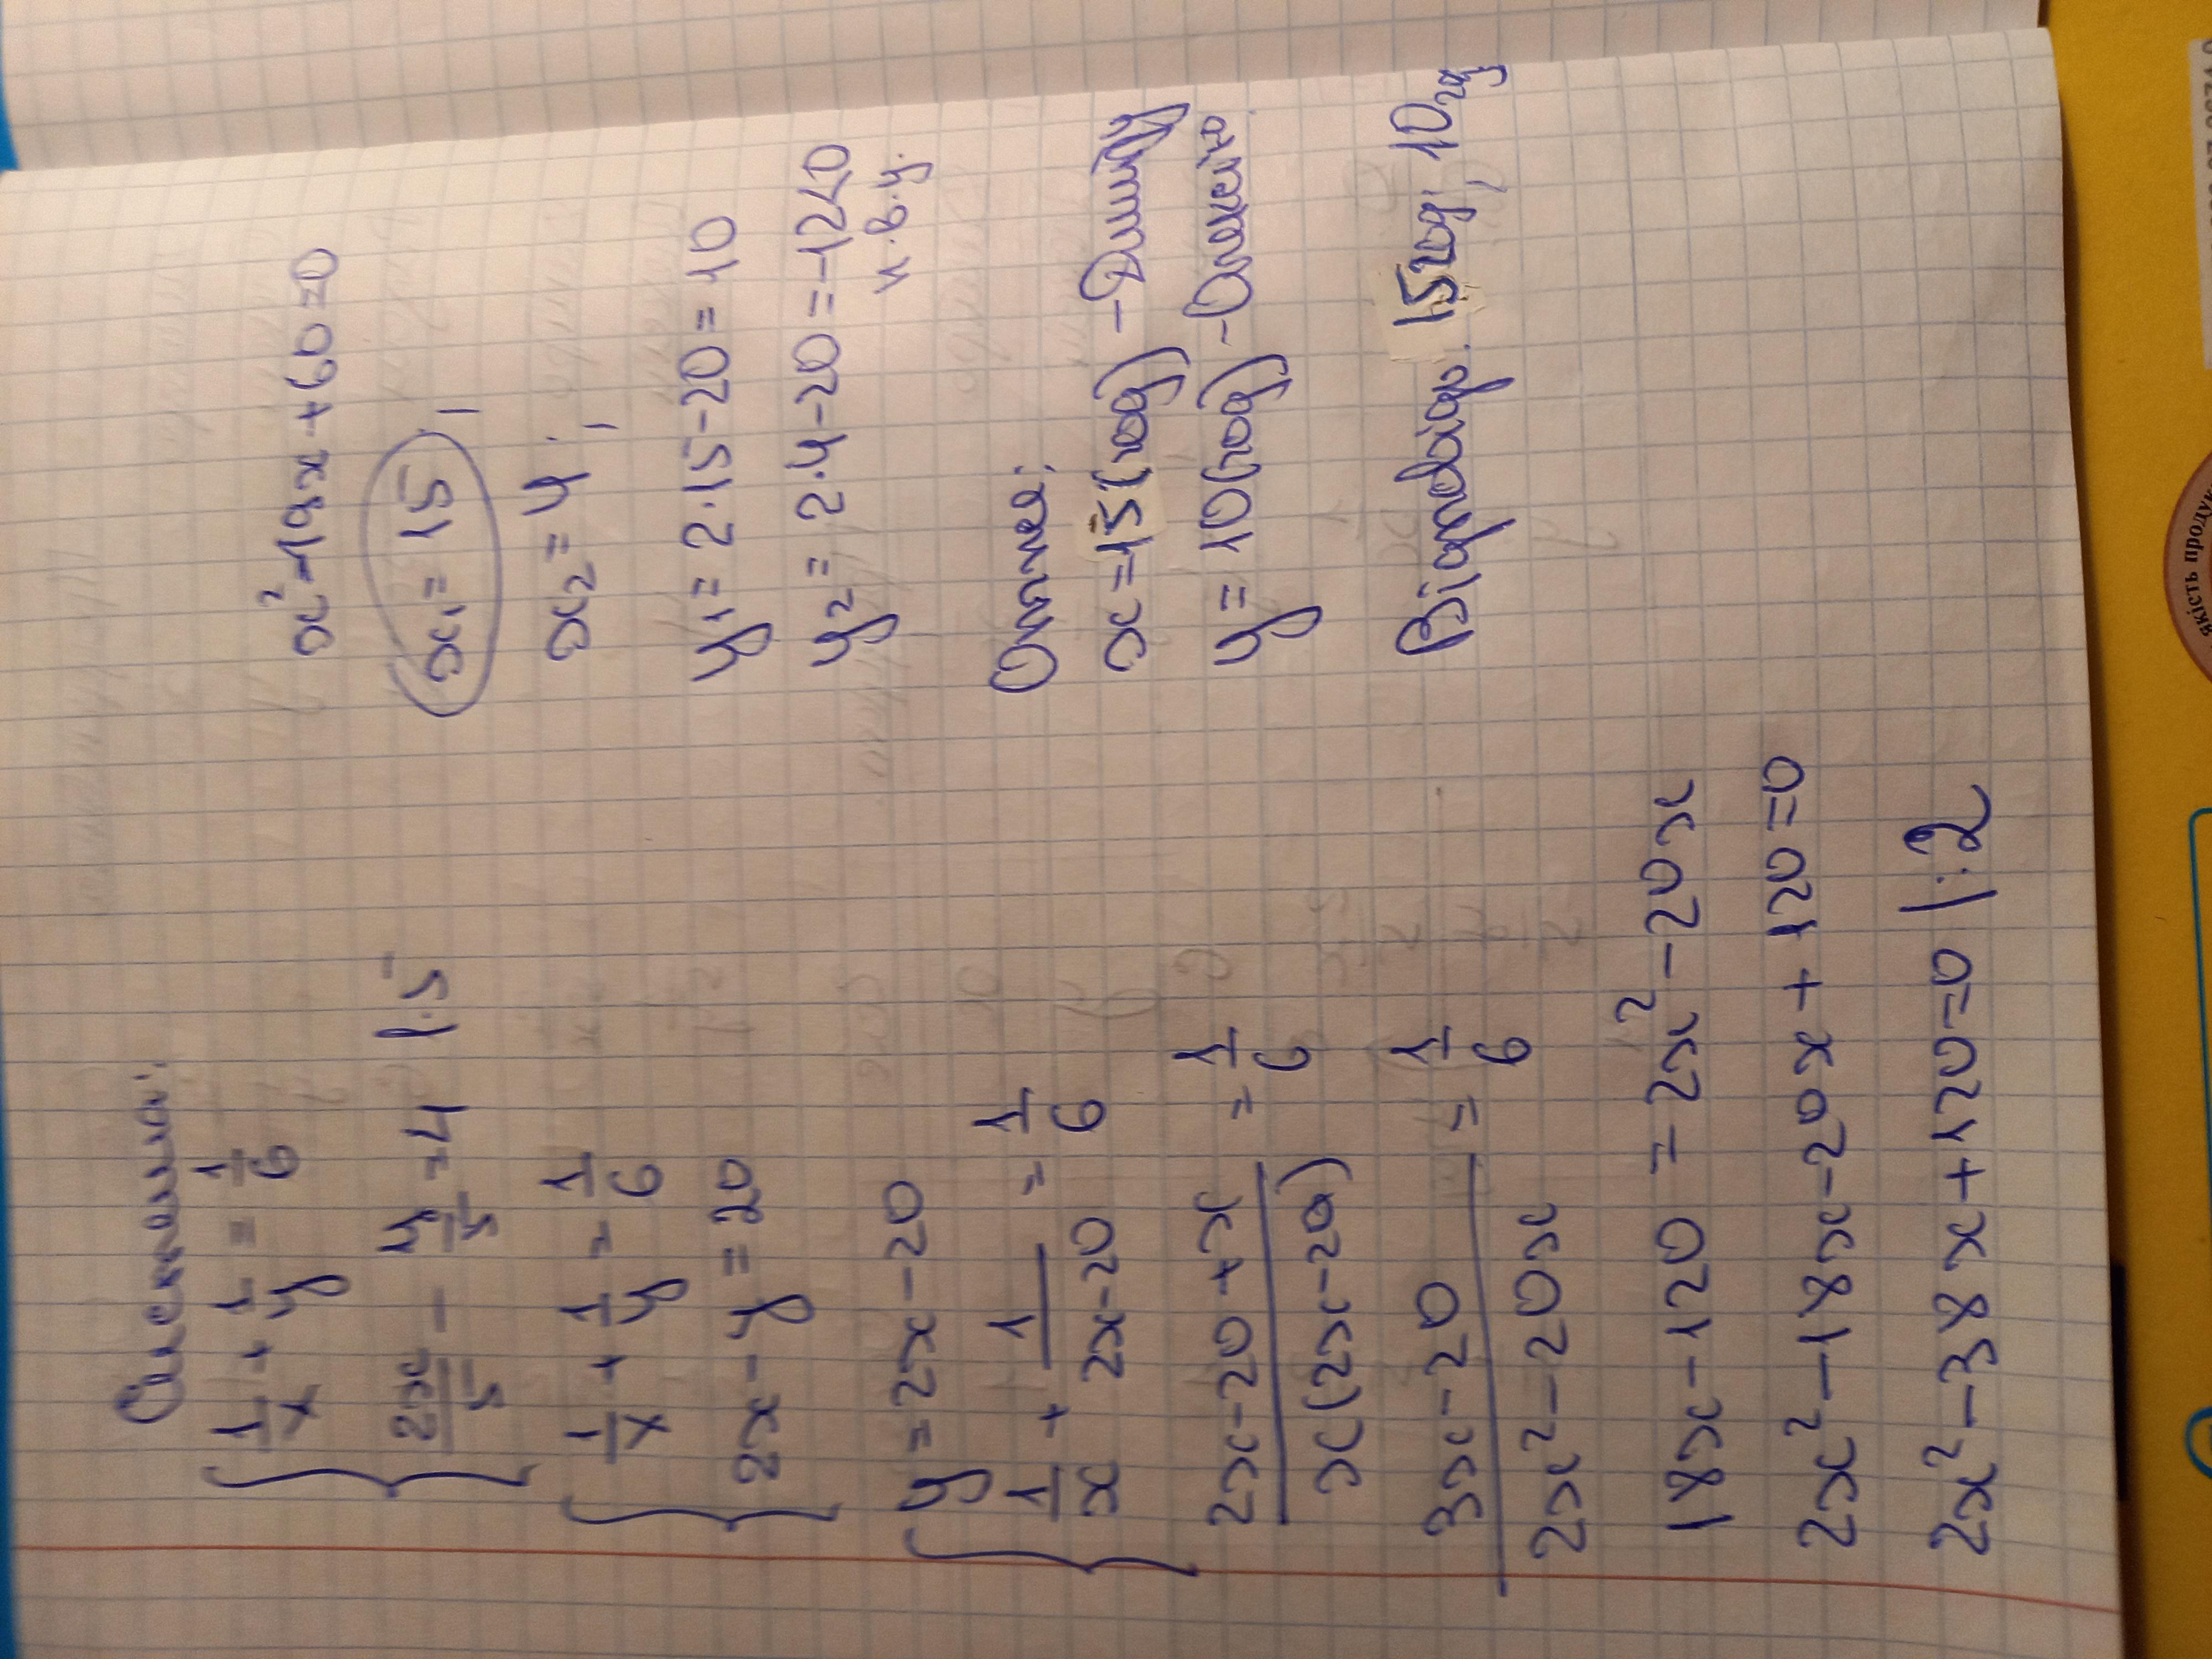 Система:
1/x + 1/y = 1/6
2x/5 - y/5 = 4 |·5
1/x + 1/y = 1/6
2x - y = 20
y = 2x - 20
1/x + 1/(2x-20) = 1/6
(2x-20+x)/(x(2x-20)) = 1/6
(3x-20)/(2x²-20x) = 1/6
18x-120 = 2x²-20x
2x²-18x-20x+120=0
2x²-38x+120=0 |:2
x²-19x+60=0
x₁=15;
x₂=4;
y₁=2·15-20=10
y₂=2·4-20=-12<0
н.в.у.
Отже:
x=15(год)-Дмитру
y=10(год)-Олексію.
Відповідь. 15год; 10год
якість продук